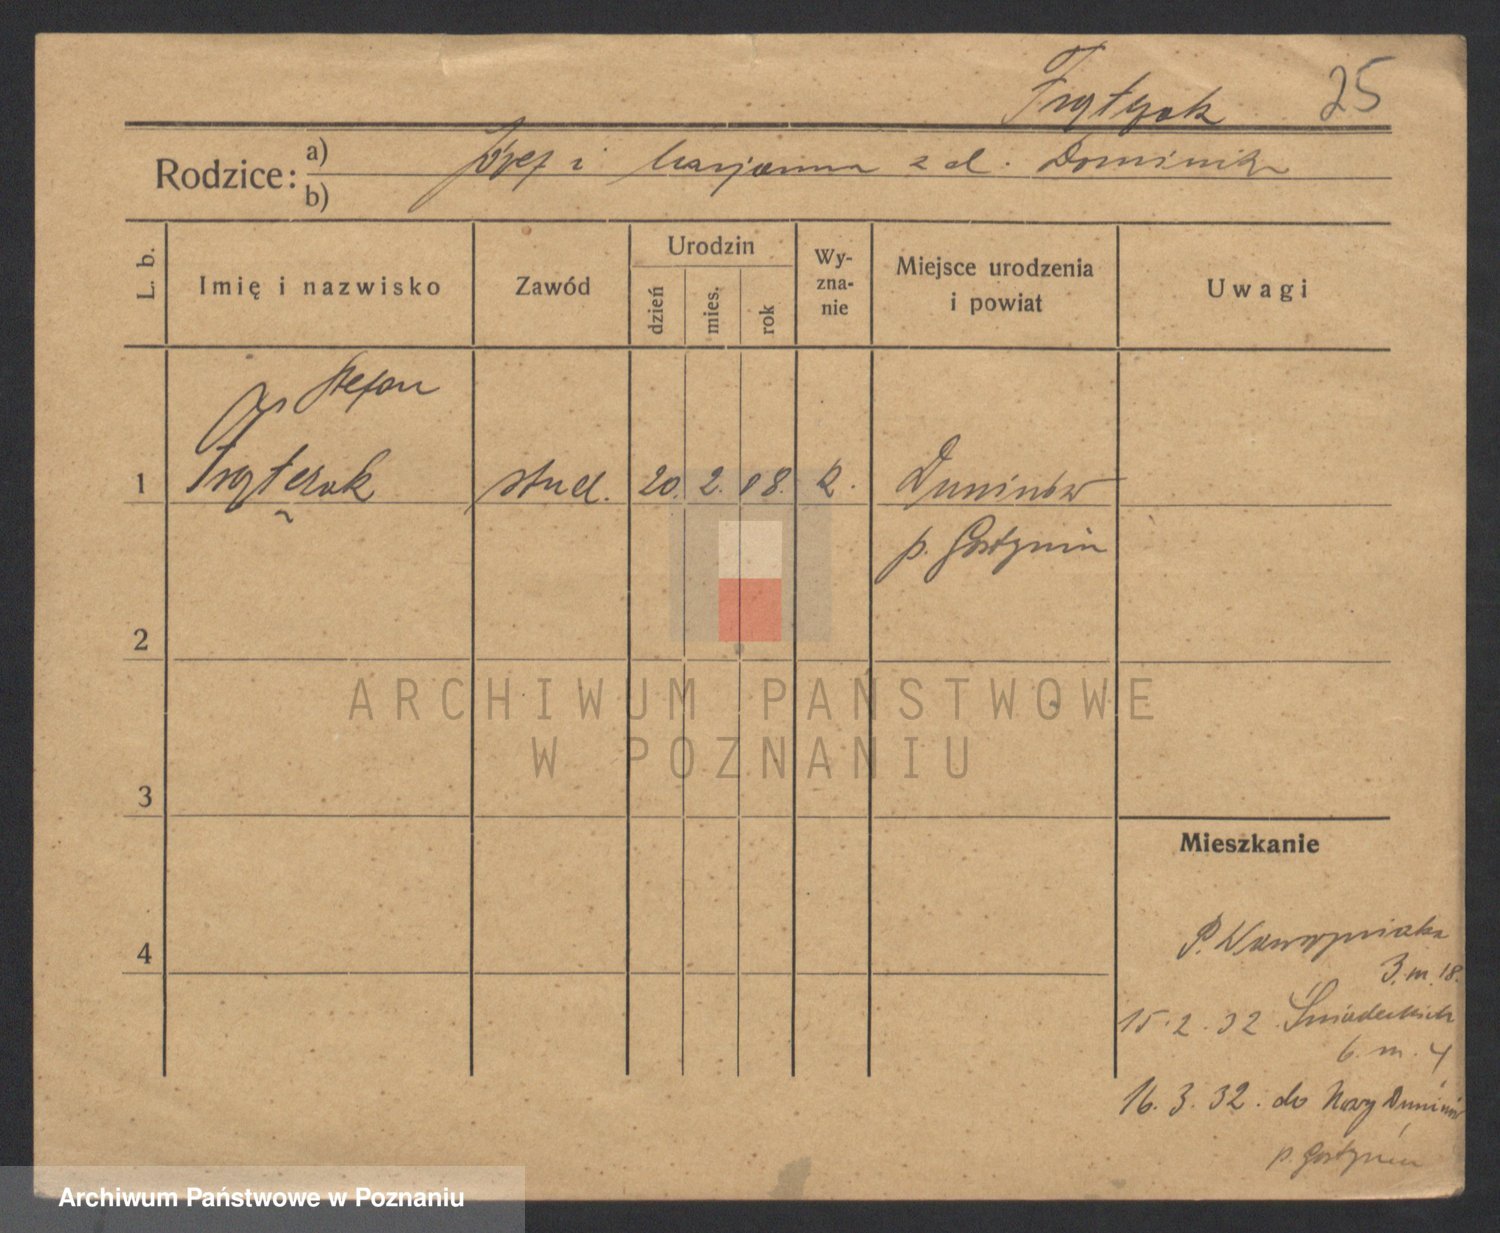 25
Rodzice: a) Józef i Marjanna z d. Dominik
b)
L. b.
Imię i nazwisko
Zawód
Urodzin
dzień
mies.
rok
Wy-
zna-
nie
Miejsce urodzenia
i powiat
Uwagi
Stefan
1 stud. 20. 2. 18. k. Duninów
p. Gostynin
2
3
4
Mieszkanie
P. Wawrzyniaka
3. m. 18.
15. 2. 32 Śniadeckich
6. m. 4
16. 3. 32. do Nowy Duninów
p. Gostynin
ARCHIWUM PAŃSTWOWE
W POZNANIU
Archiwum Państwowe w Poznaniu